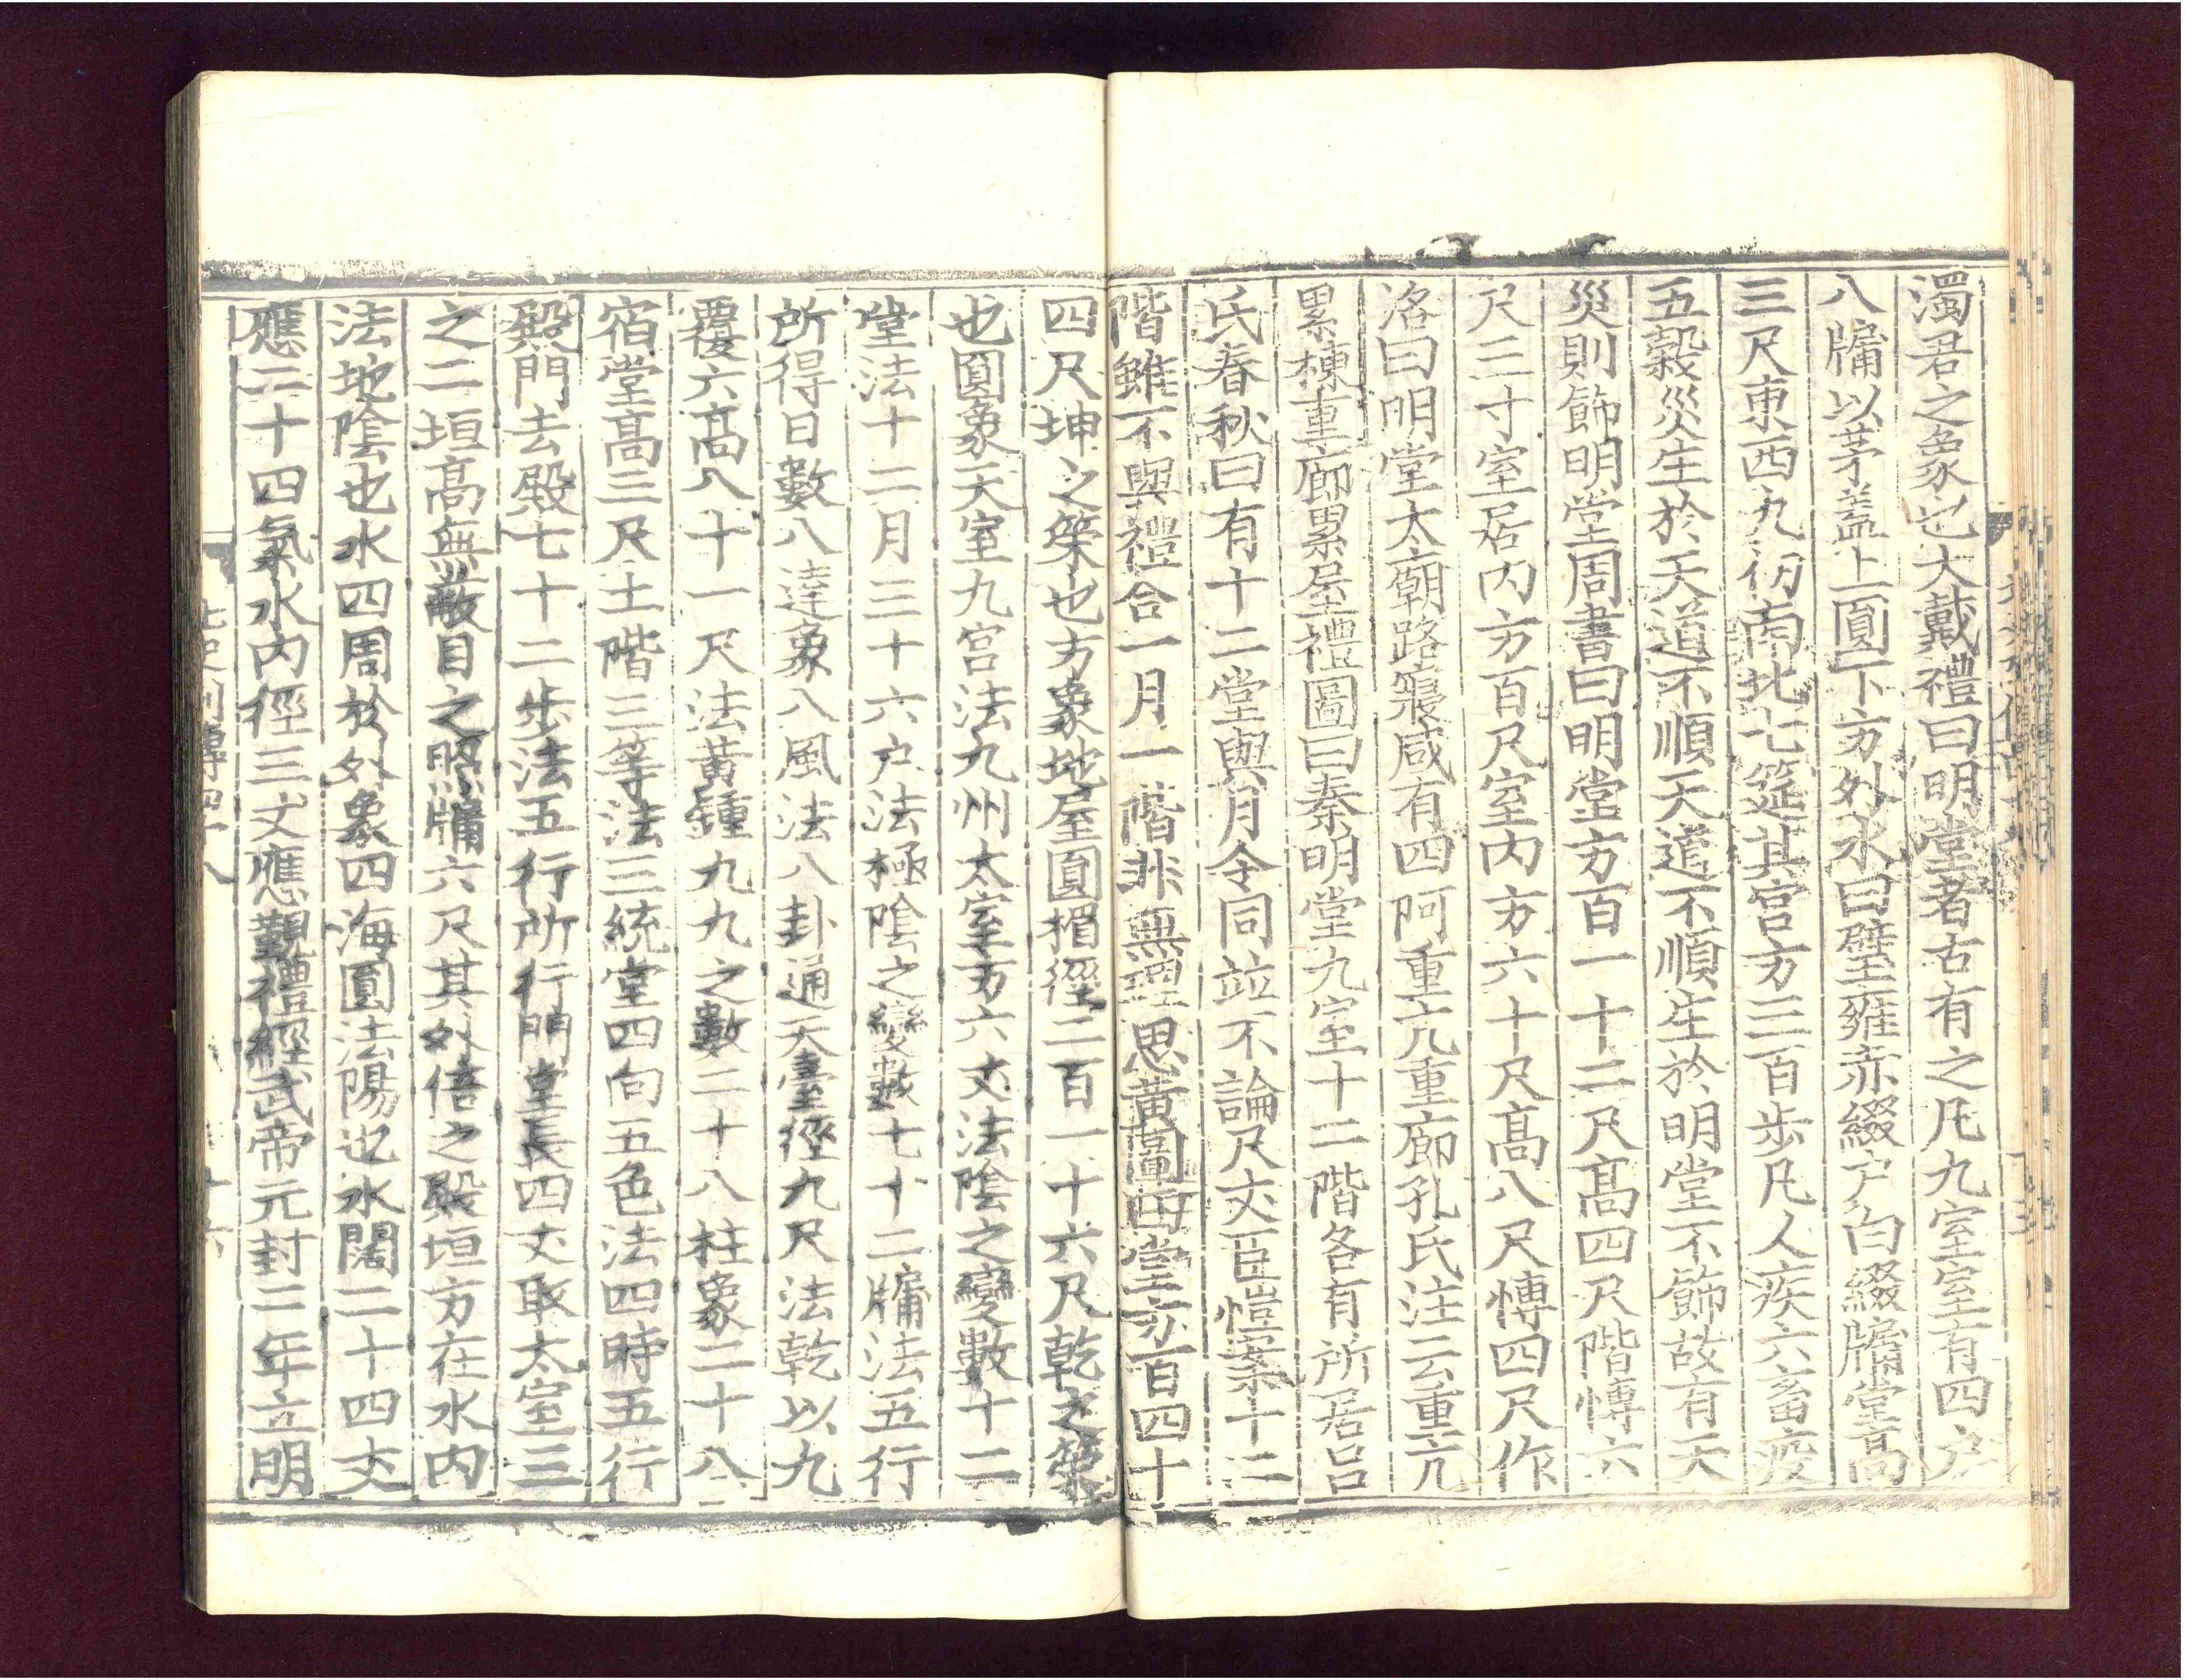 濁君之象也大戴禮曰明堂者古有之凡九室室有四户
八牖以茅蓋上圓下方外水曰璧雍赤綴户白綴牖堂高
三尺東西九仞南北七筵其宫方三百步凡人疾六畜疫
五穀災生於天道不順天道不順生於明堂不飾故有天
災則飾明堂周書曰明堂方百一十二尺高四尺階慱六
尺三寸室居内方百尺室内方六十尺高八尺慱四尺作
洛曰明堂太廟路寢咸有四阿重亢重廊孔氏注云重亢
累棟重廊累屋禮圖曰秦明堂九室十二階各有所居吕
氏春秋曰有十二堂與月令同竝不論尺丈臣愷案十二
階雖不與禮合一月一階非無理思黄圖曰堂方百四十
四尺坤之策也方象地屋圓楣徑二百一十六尺乾之策
也圓象天室九宫法九州太室方六丈法陰之變數十二
堂法十二月三十六户法極陰之變數七十二牖法五行
所得日數八達象八風法八卦通天臺徑九尺法乾以九
覆六高八十一尺法黄鍾九九之數二十八柱象二十八
宿堂高三尺土階三等法三統堂四向五色法四時五行
殿門去殿七十二步法五行所行門堂長四丈取太室三
之二垣高無蔽目之照牖六尺其外倍之殿垣方在水内
法地陰也水四周於外象四海圓法陽也水闊二十四丈
應二十四氣水内徑三丈應覲禮經武帝元封二年立明
北史列傳四十八